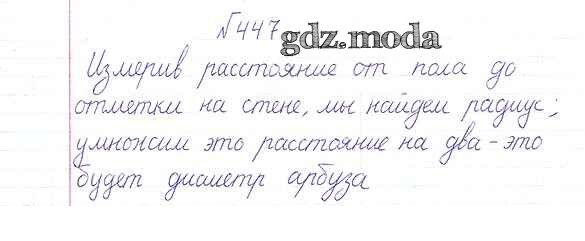 №447
gdz.moda
Измерив расстояние от пола до
отметки на стене, мы найдем радиус;
умножим это расстояние на два - это
будет диаметр арбуза